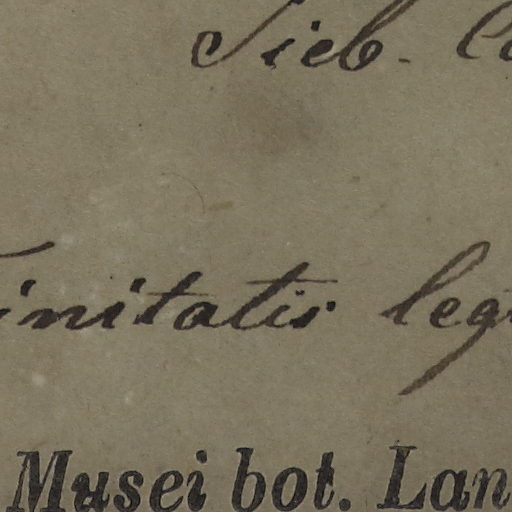 Sieb.
initatis leg
Musei bot. Lan